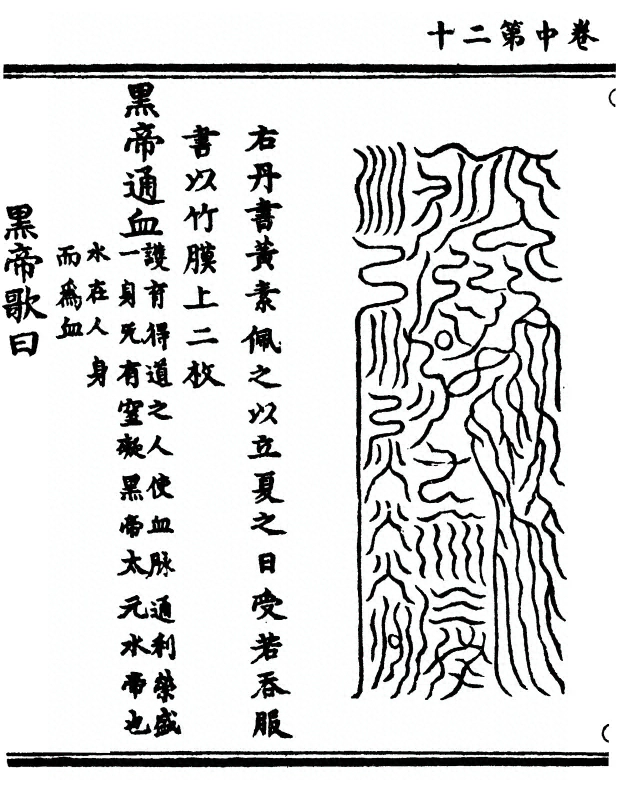 卷中第二十
右丹書黃素佩之以立夏之日受若吞服
書以竹膜上二枚
黑帝通血
護育得道之人使血脉通利榮盛
一身无有窒礙黑帝太元水帝也
水在人身
而為血
黑帝歌曰